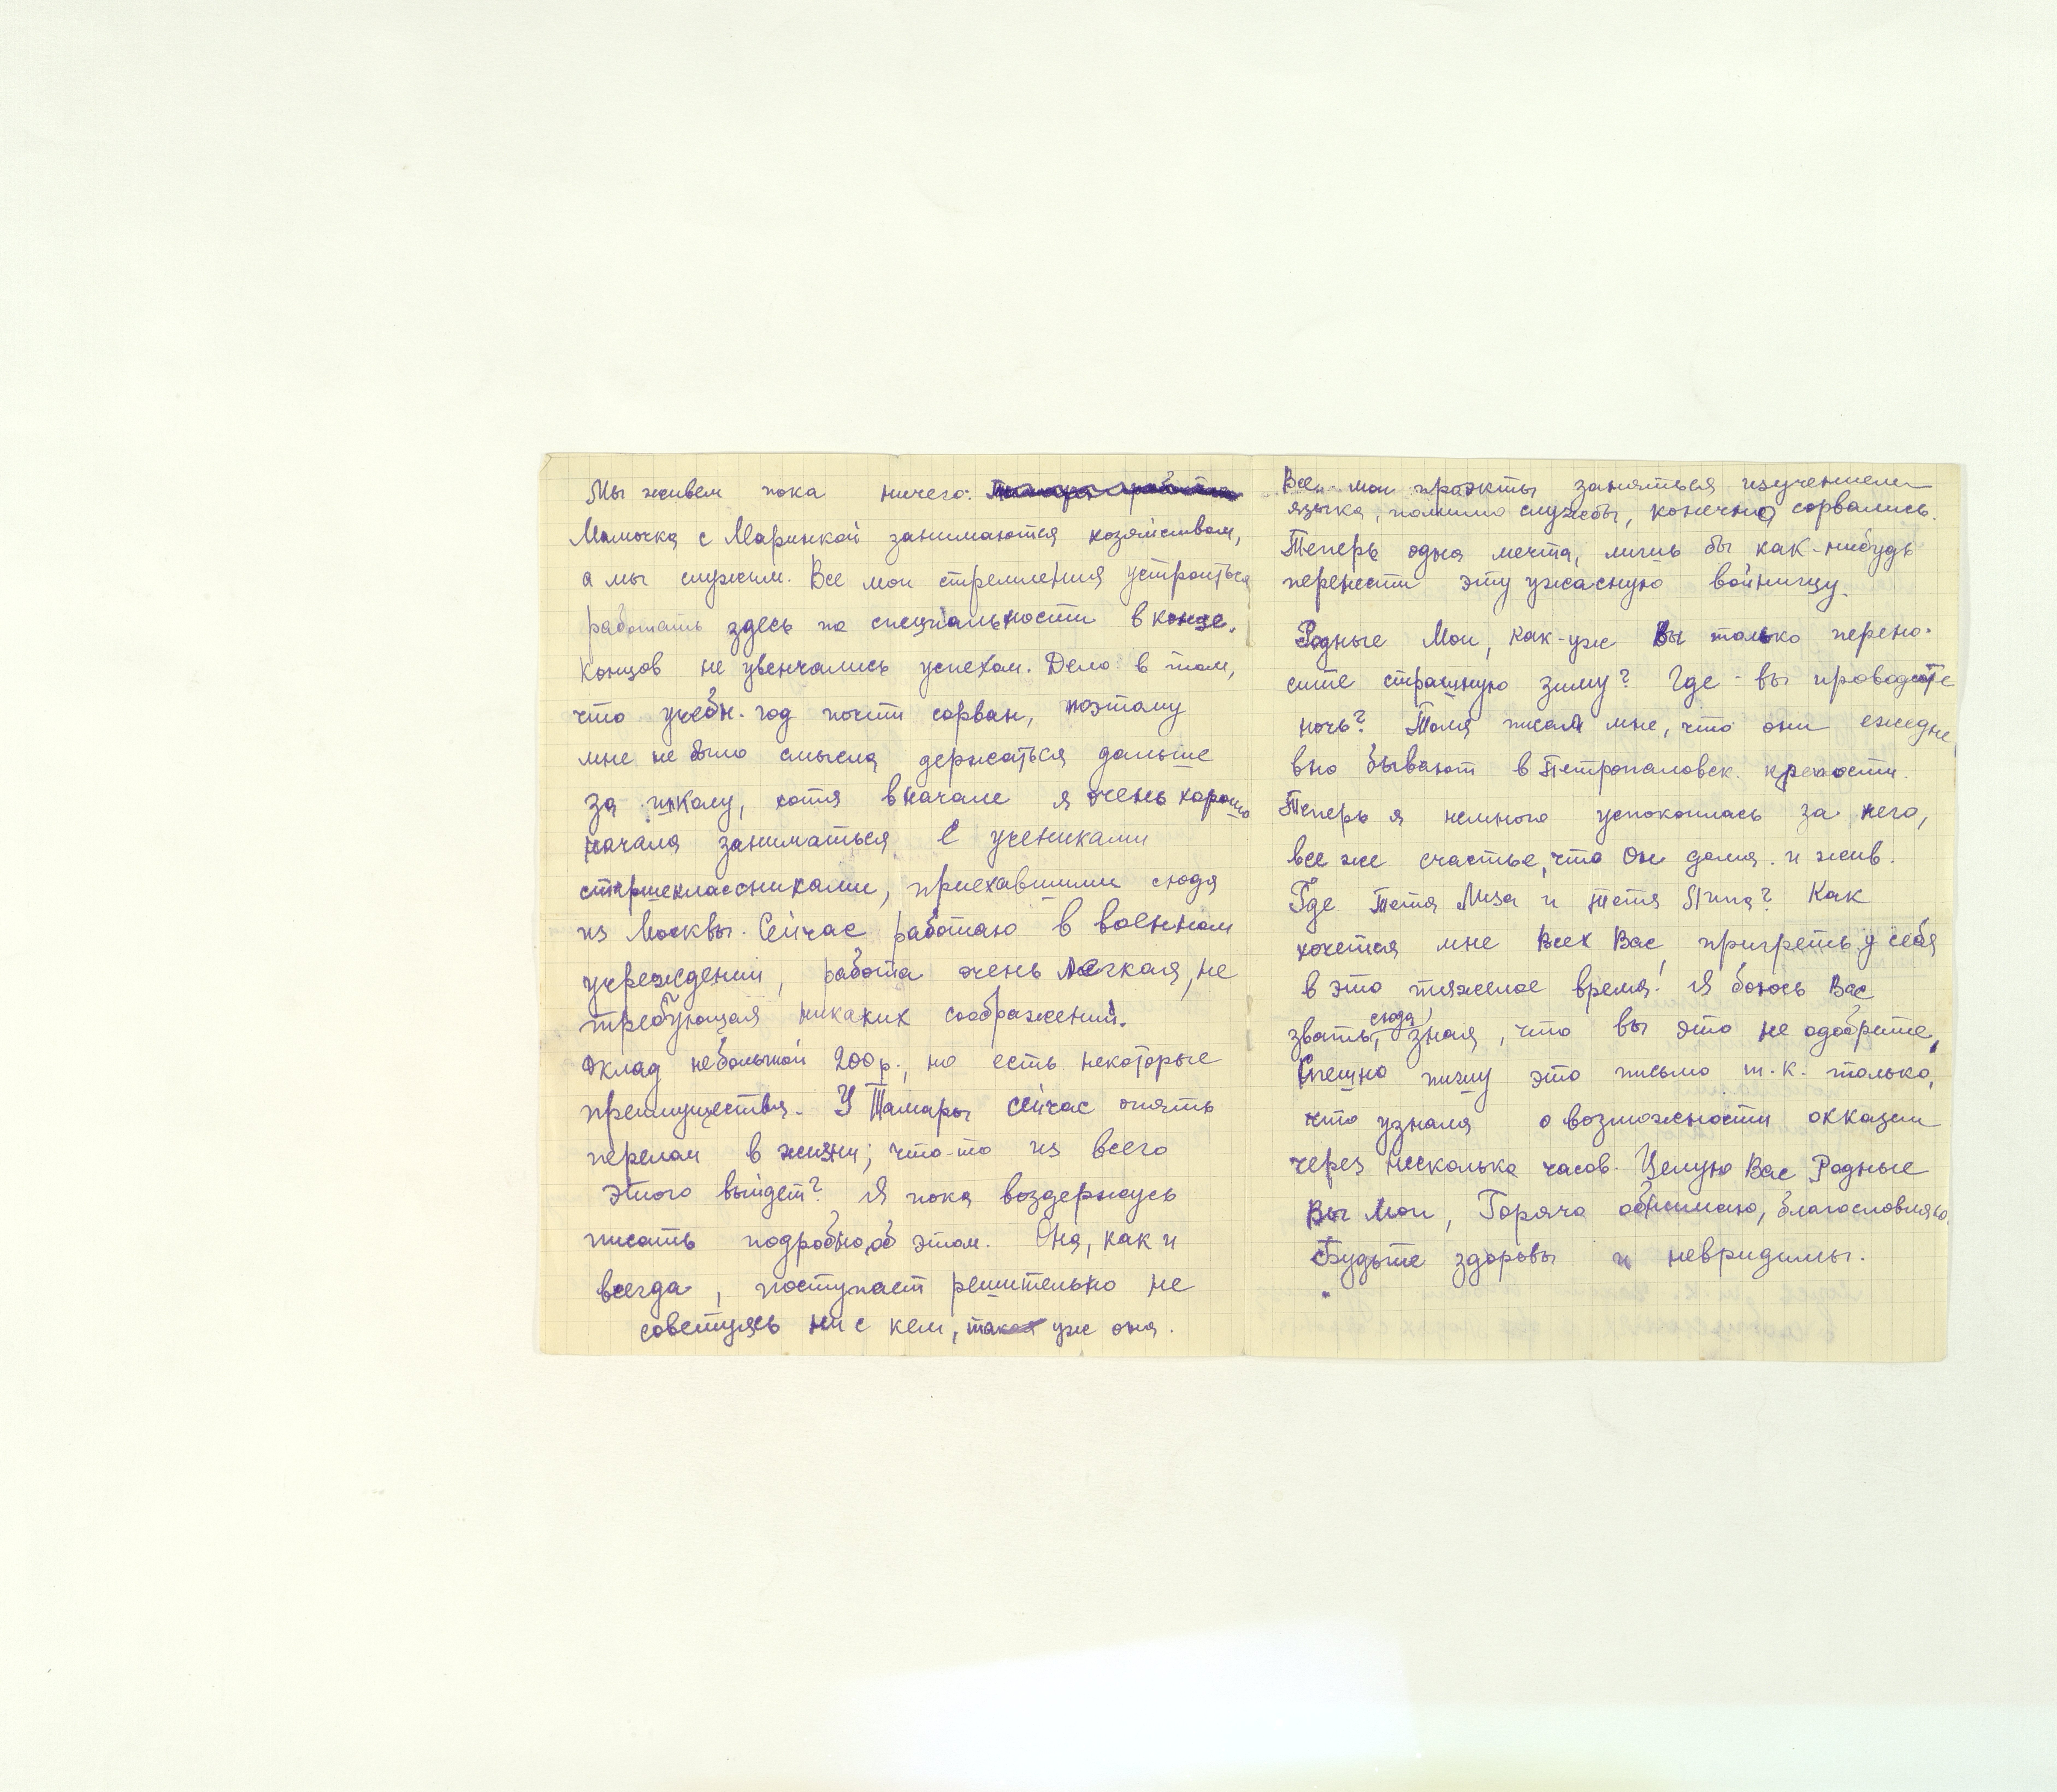 Мы живем пока ничего:
Мамочка с Маринкой занимаются хозяйством,
а мы служим. Все мои стремления устроиться
работать здесь по специальности в конце.
концов не увенчались успехом. Дело в том,
что учебн. год почти сорван, поэтому
мне не было смысла держаться дальше
за школу, хотя вначале я очень хорошо
начала заниматься с учениками
старшеклассниками, приехавшими сюда
из Москвы. Сейчас работаю в военном
учреждении, работа очень легкая, не
требующая никаких соображений.
Оклад небольшой 200 р., но есть некоторые
преимущества. У Тамары сейчас опять
перелом в жизни; что-то из всего
этого выйдет? Я пока воздержусь
писать подробно об этом. Она, как и
всегда, поступает решительно не
советуясь ни с кем, такая уж она.
Все мои проэкты заняться изучением
языка, помимо службы, конечно сорвались.
Теперь одна мечта, лишь бы как-нибудь
перенести эту ужасную войнищу.
Родные Мои, как-уж Вы только перено-
сите страшную зиму? Где-вы проводите
ночь? Толя писал мне, что они ежедне
вно бывают в Петропаловск. крепости.
Теперь я немного успокоилась за него,
все же счастье, что Он дома. и жив.
Где Тетя Лиза и тетя Нина? Как
хочется мне Всех Вас, пригреть у себя
в это тяжелое время! Я боюсь Вас
звать, сюда, зная, что вы это не одобрите,
Спешно пишу это письмо т.к. только,
что узнала о возможности окказии
через несколько часов. Целую Вас Родные
Вы Мои, Горячо обнимаю, благословляю.
Будьте здоровы и невридимы.